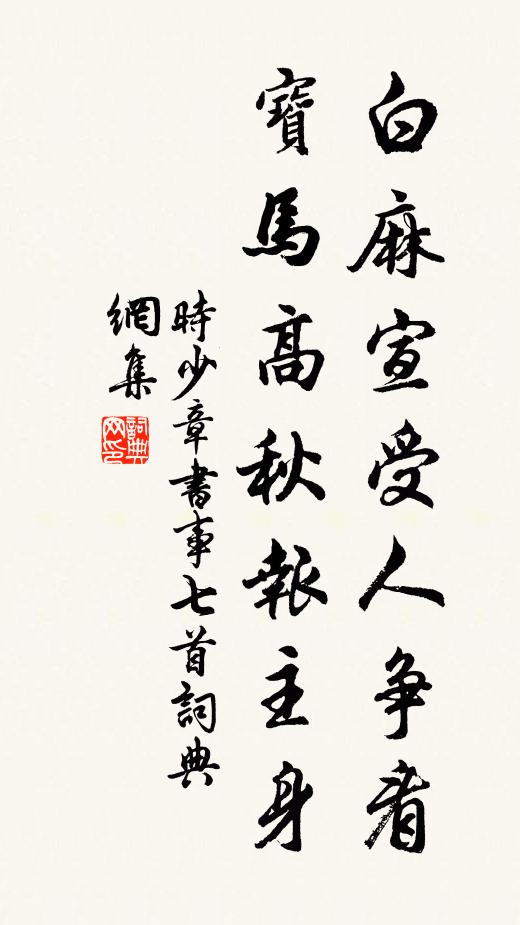 白麻宣受人争看
寶馬高秋報主身
時少章書事七首詞典
網集
詞典
网印